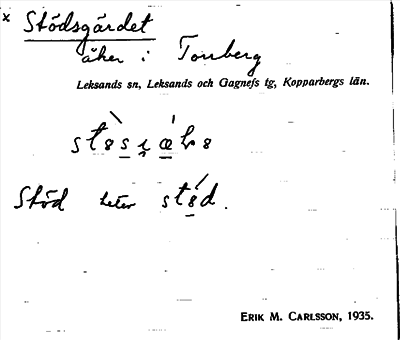 x Stödsgärdet
åker i Tonberg
Leksands sn, Leksands och Gagnefs tg, Kopparbergs län.
Stöd heter
ERIK M. CARLSSON, 1935.